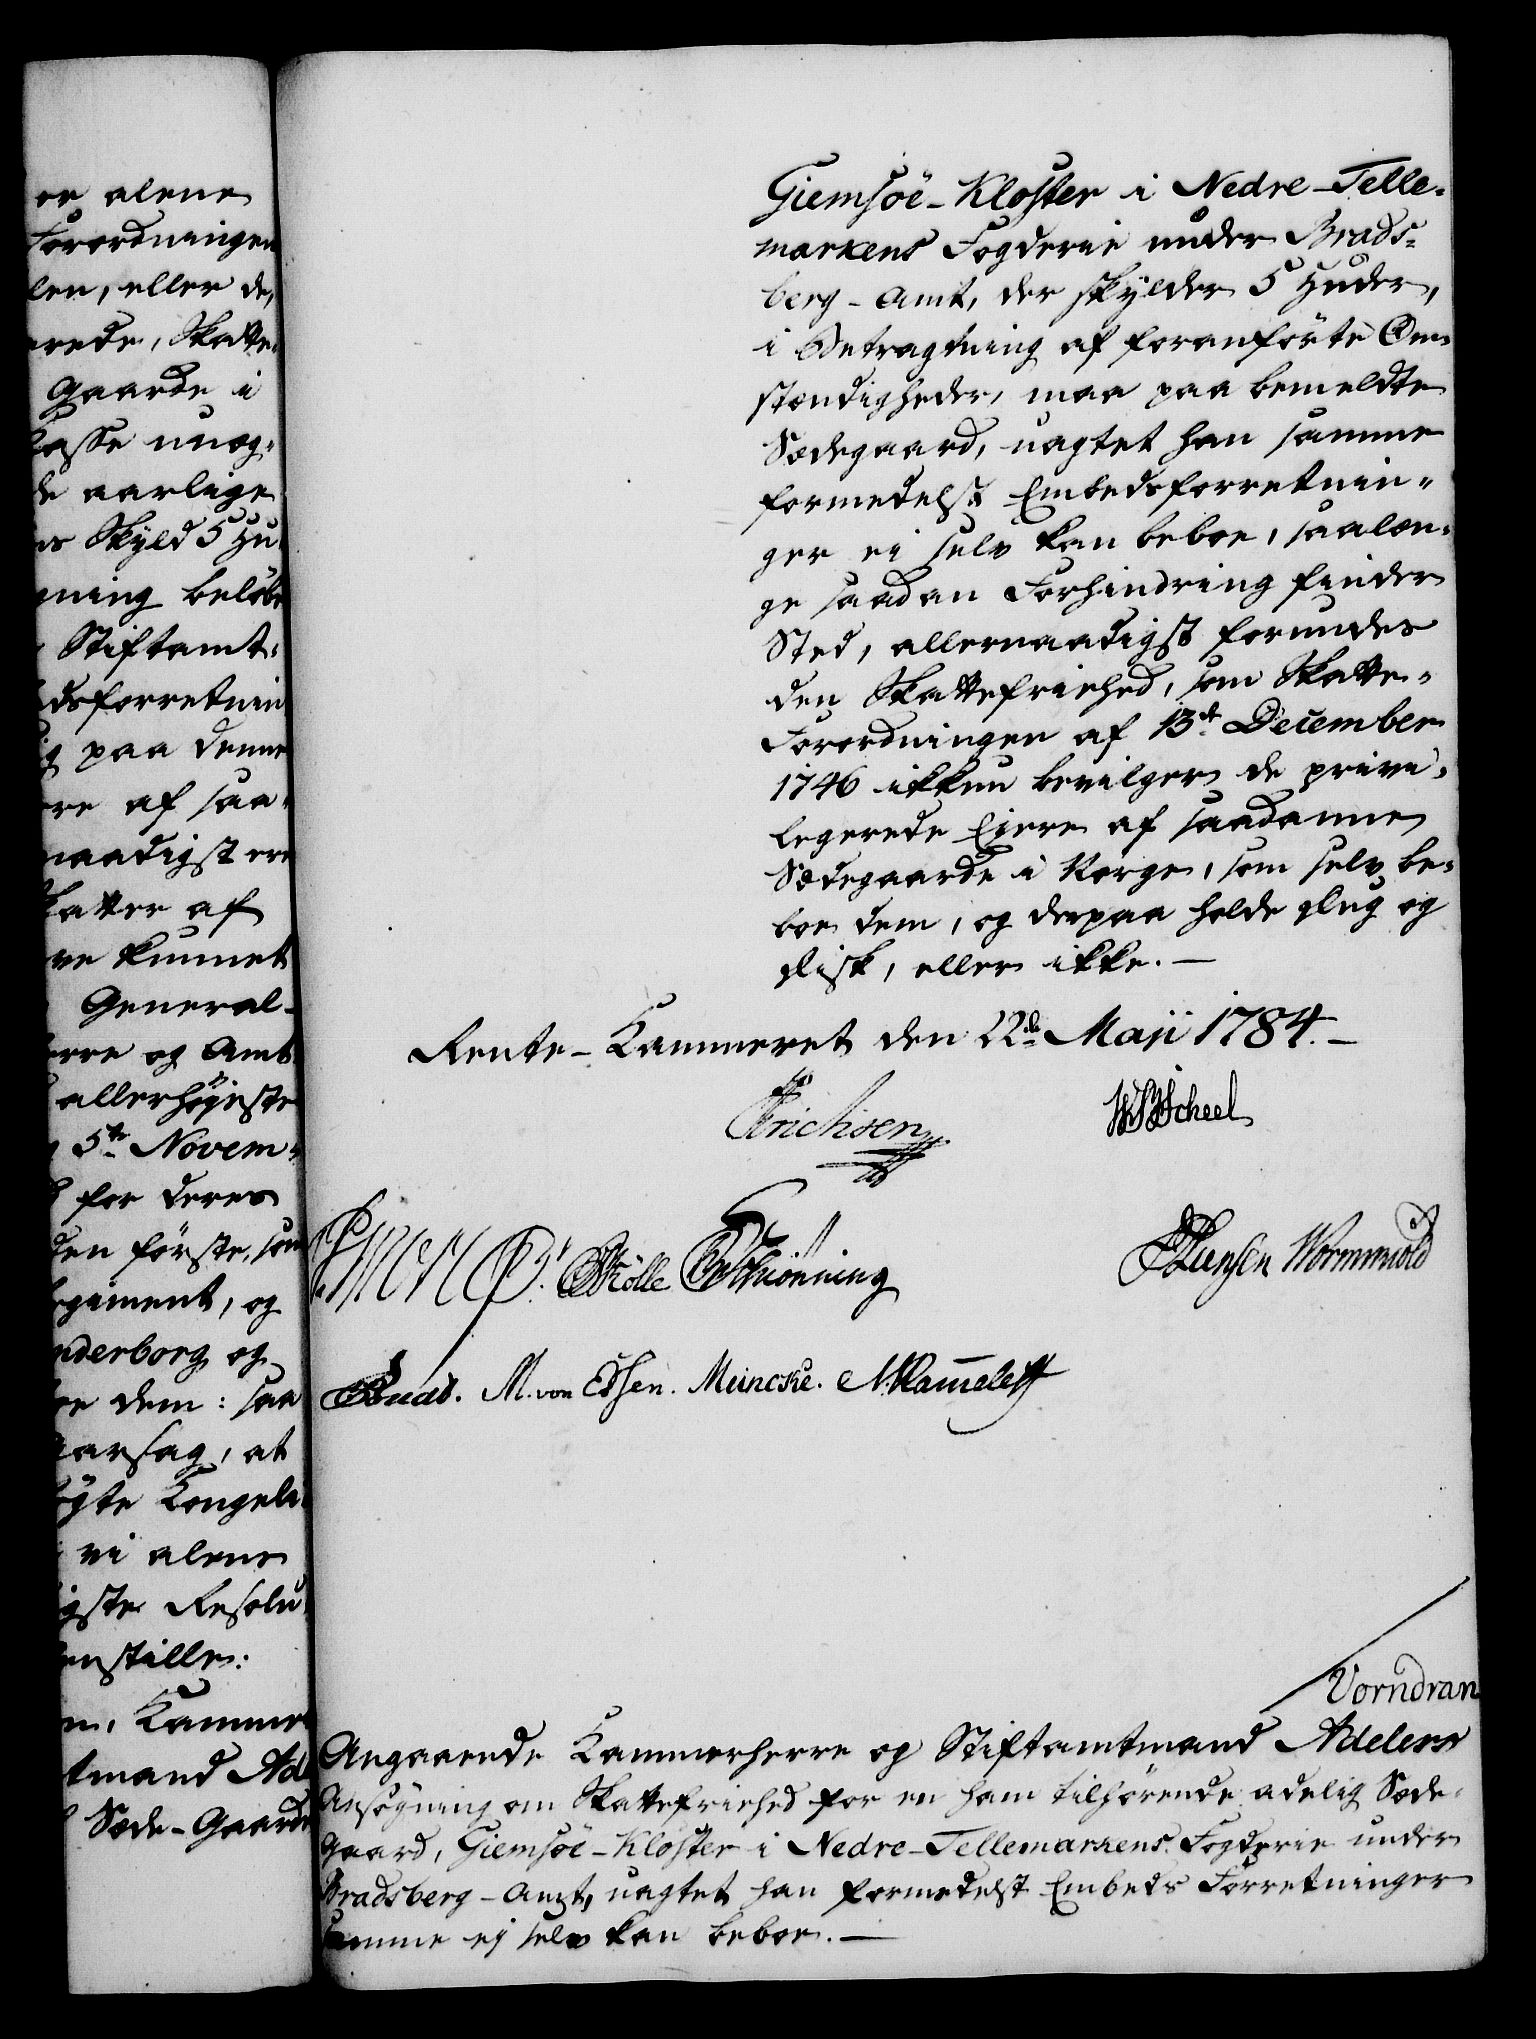 er alene
Forordningen
len, eller de,
erede, Skatte-
Gaarde i
Casse uneg-
de aarlige
ns Skyld 5 Hu-
gning beløber
Stiftamt-
dsforretnin
ig paa denne
ere af saa-
naadigst ere
katter af
ve kunnet
General-
erre og Amt-
allerhøjeste
5te Novem-
for deres
den første, som
egiment, og
nderborg og
oe dem: saa
aarsag, at
øgte Kongeli-
vi alene
igste Resolu-
enstille:
n, Kammer-
tmand Ade
Sæde-Gaarde
Giemsöe-Kloster i Nedre-Telle-
markens Fogderie under Brads-
berg-Amt, der skylder 5 Huder,
i Betragtning af foranførte Om-
stændigheder, maa paa bemeldte
Sædegaard, uagtet han samme
formedelst Embedsforretnin-
ger ei selv kan beboe, saalæn-
ge saadan Forhindring finder
Sted, allernaadigst forundes
den Skattefriehed, som Skatte-
Forordningen af 13de December
1746 ikkun bevilger de privi-
legerede Eiere af saadanne
Sædegaarde i Norge, som selv be-
boe dem, og derpaa holde Plug og
Disk, eller ikke. —
Rente-Kammeret den 22de Maji 1784. —
Erichsen
Scheel
Mölle Schiönning
Hansen Wormskiold
M. von Essen. Meincke.
Vorndran
Angaaende Kammerherre og Stiftamtmand Adelers
Ansøgning om Skattefriehed for en ham tilhørende adelig Sæde-
gaard, Giemsöe-Kloster i Nedre-Tellemarkens Fogderie under
Bradsberg-Amt, uagtet han formedelst Embeds Forretninger
samme ej selv kan beboe. —